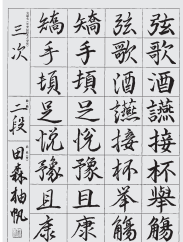 弦歌酒讌接杯舉觴
弦歌酒讌接杯举觴
矯手頓足悦豫且康
矯手頓足悦豫且康
三次 二段 田森柚帆